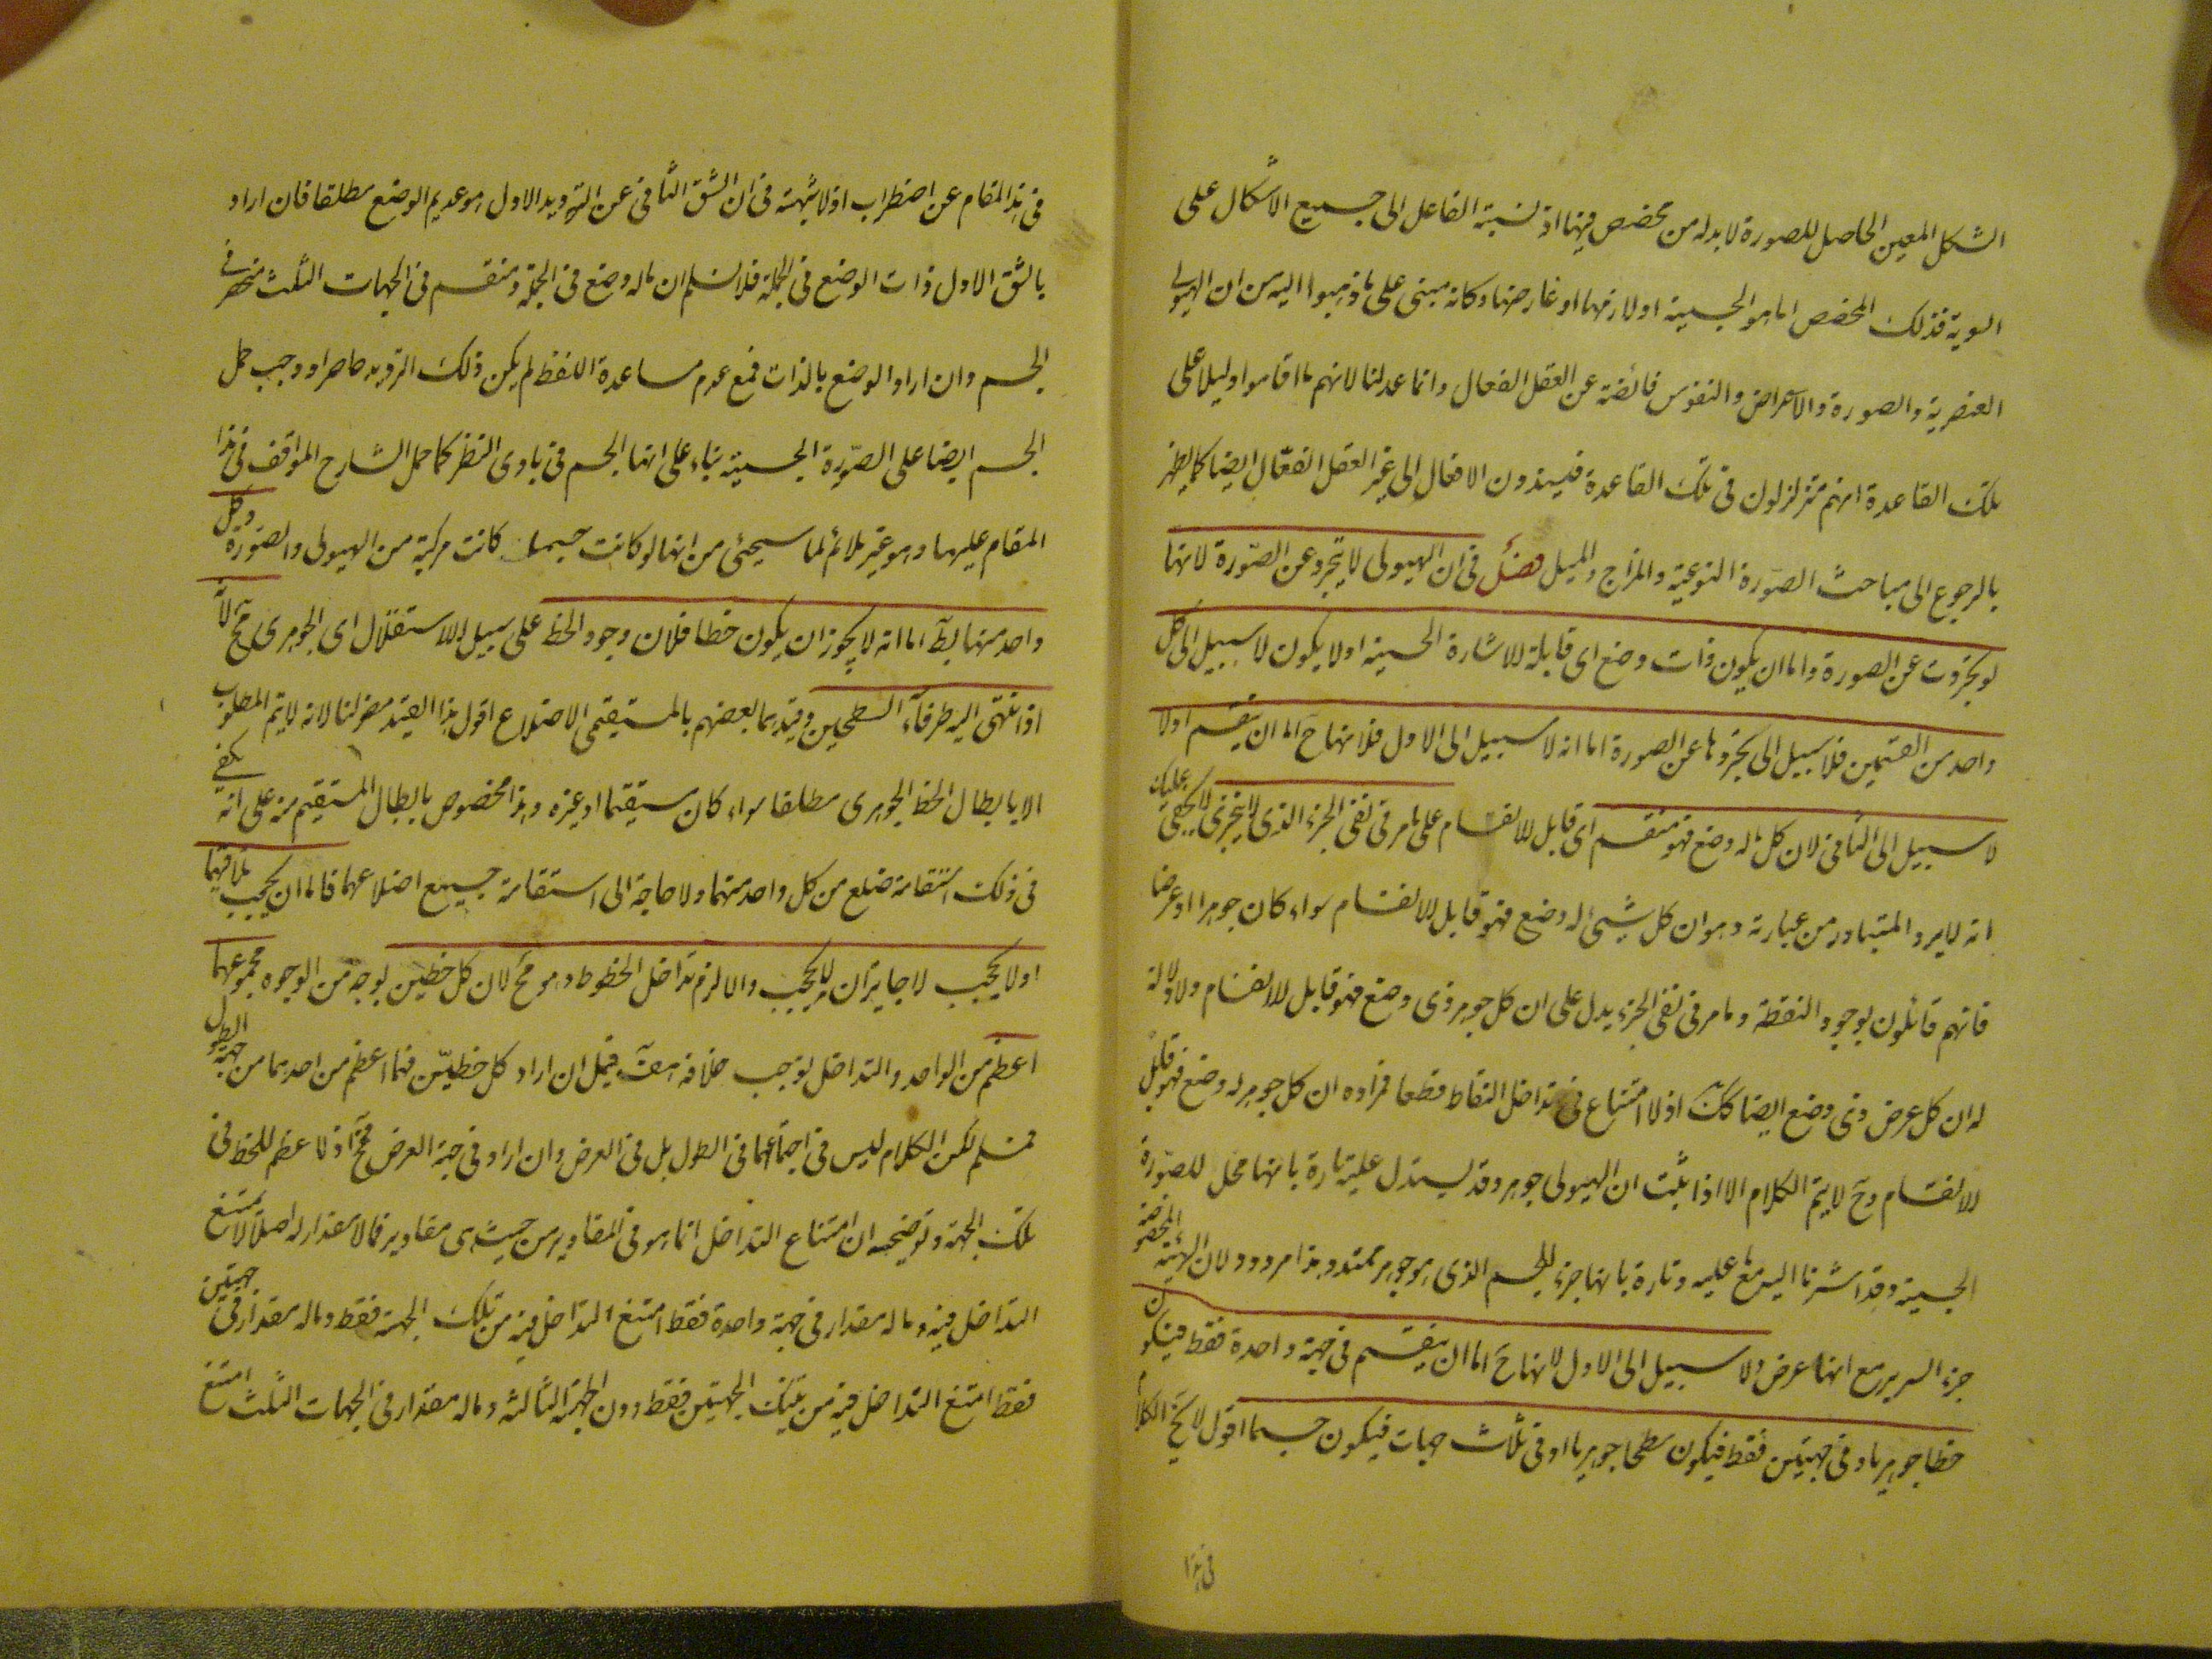 الشكل المعين الحاصل للصورة لا بد له من مخصص فيها اذ نسبة الفاعل الى جميع الاشكال على
السوية فذلك المخصص اما هو الجسمية او لازمها او عارضها وكانه مبنى على ما ذهبوا اليه من ان الهيولى
العنصرية والصورة والاعراض والنفوس فائضة عن العقل الفعال وانما عدلنا لانهم ما اقاموا دليلا على
تلك القاعدة انهم متزلزلون فى تلك القاعدة فيسندون الافعال الى غير العقل الفعال ايضا كما يظهر
بالرجوع الى مباحث الصورة النوعية والمزاج والميل فصل فى ان الهيولى لا يتجرد عن الصورة لانها
لو تجردت عن الصورة واما ان يكون ذات وضع اى قابلة للاشارة الحسية او لا يكون لا سبيل الى كل
واحد من القسمين فلا سبيل الى تجردها عن الصورة اما انه لا سبيل الى الاول فلانها ح اما ان ينقسم او لا
لا سبيل الى الثانى لان كل ما له وضع فهو منقسم اى قابل للانقسام على ما مر فى نفى الجزء الذى لا يتجزى لا يخفى عليك
انه لا يرد المتبادر من عبارته وهو ان كل شيئ له وضع فهو قابل للانقسام سواء كان جوهرا او عرضا
فانهم قائلون بوجود النقطة وما مر فى نفى الجزء يدل على ان كل جوهر ذى وضع فهو قابل للانقسام ولا دلالة
له ان كل عرض ذى وضع ايضا كك اذ لا امتناع فى تداخل النقاط قطعا فمراده ان كل جوهر له وضع فهو قابل
للانقسام وح لا يتم الكلام الا اذا ثبت ان الهيولى جوهر وقد يستدل عليه تارة بانها محل للصورة
الجسمية وقد اشرنا اليه مع ما عليه وتارة بانها جزء للجسم الذى هو جوهر ممتد وهذا مردود لان الهيئة المخصوصة
جزء السرير مع انها عرض ولا سبيل الى الاول لانها ح اما ان ينقسم فى جهة واحدة فقط فيكون
خطا جوهريا او فى جهتين فقط فيكون سطحا جوهريا او فى ثلث جهات فيكون جسما اقول لا يخ الكلام
فى هذا
فى هذا المقام عن اضطراب اذ لا شبهة فى ان الشق الثانى عن الترديد الاول هو عديم الوضع مطلقا فان اراد
بالشق الاول ذات الوضع فى الجملة فلا نسلم ان ما له وضع فى الجملة ومنقسم فى الجهات الثلث منحصر فى
الجسم وان اراد الوضع بالذات فمع عدم مساعدة اللفظ لم يكن ذلك الترديد حاصرا ووجب حمل
الجسم ايضا على الصورة الجسمية بناء على انها الجسم فى بادى النظر كما حمل الشارح المواقف فى هذا
المقام عليها وهو غير ملائم لما سيجئ من انها لو كانت جسما كانت مركبة من الهيولى والصورة وكل
واحد منها بط اما انه لا يجوز ان يكون خطا فلان وجود الخط على سبيل الاستقلال اى الجوهرى مح لانه
اذا ينتهى اليه طرفا السطحين وقيدهما بعضهم بالمستقيمى الاضلاع اقول هذا القيد مضر لنا لانه لا يتم المطلوب
الا بابطال الخط الجوهرى مطلقا سواء كان مستقيما او غيره وهذا مخصوص بابطال المستقيم منه على انه يكفى
فى ذلك استقامة ضلع من كل واحد منهما ولا حاجة الى استقامة جميع اضلاعهما فاما ان يحجب تلاقيهما
او لا يحجب لا جايز ان لا يحجب والا لزم تداخل الخطوط وهو مح لان كل خطين بوجه من الوجوه مجموعهما
اعظم من الواحد والتداخل يوجب خلافه هف قيل ان اراد كل خطين فهما اعظم من احدهما من جهة الطول
فمسلم لكن الكلام ليس فى اجتماعهما فى الطول بل فى العرض وان اراد فى جهة العرض فمح اذ لا عظم للخط فى
تلك الجهة وتوضيحه ان امتناع التداخل انما هو فى المقادير من حيث هى مقادير فما لا مقدار له اصلا لا يمتنع
التداخل فيه وما له مقدار فى جهة واحدة فقط امتنع التداخل فيه من تلك الجهة فقط وما له مقدار فى جهتين
فقط امتنع التداخل فيه من تينك الجهتين فقط دون الجهة الثالثة وما له مقدار فى الجهات الثلث امتنع